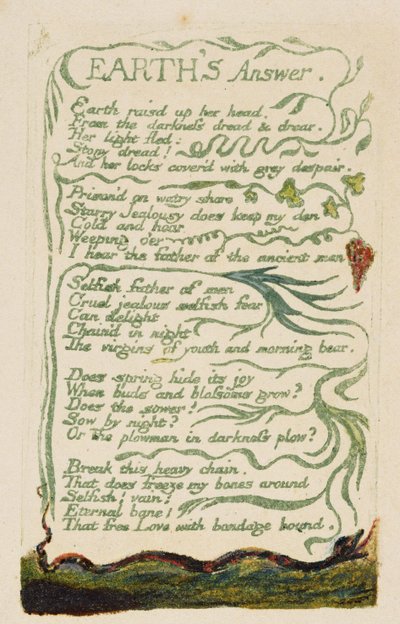 EARTH'S Answer.
Earth rais'd up her head.
From the darkness dread & drear.
Her light fled:
Stony dread!
And her locks cover'd with grey despair.
Prison'd on watry shore
Starry Jealousy does keep my den
Cold and hoar
Weeping o'er
I hear the father of the ancient men
Selfish father of men
Cruel jealous selfish fear
Can delight
Chain'd in night
The virgins of youth and morning bear.
Does spring hide its joy
When buds and blossoms grow?
Does the sower?
Sow by night?
Or the plowman in darkness plow?
Break this heavy chain.
That does freeze my bones around
Selfish! vain!
Eternal bane!
That free Love with bondage bound.